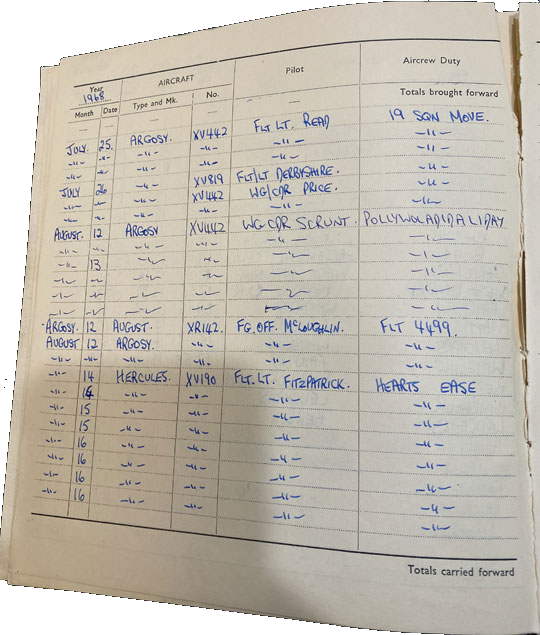 Year AIRCRAFT Pilot Aircrew Duty
1968
Month Date Type and Mk. No. Totals brought forward
— — — — —
JULY. 25. ARGOSY. XV442 FLT LT. READ 19 SQN MOVE.
-"- -"- -"- -"- -"- -"-
-"- -"- -"- -"- -"- -"-
JULY 26 -"- XV819 FLT/LT DERBYSHIRE. -"-
-"- -"- -"- XV442 WG/CDR PRICE. -"-
-"- -"- -"- -"- -"- -"-
AUGUST. 12 ARGOSY XV442 WG CDR SCRUNT. POLLYWOLADIDALIDAY
-"- -"- -"- -"- -"- -"-
-"- 13 -"- -"- -"- -"-
-"- -"- -"- -"- -"- -"-
-"- -"- -"- -"- -"- -"-
-"- -"- -"- -"- -"- -"-
ARGOSY. 12 AUGUST. XR142. FG. OFF. McLOUGHLIN. FLT 4499.
AUGUST 12 ARGOSY. -"- -"- -"-
-"- -"- -"- -"- -"- -"-
-"- 14 HERCULES. XV190 FLT. LT. FITZPATRICK. HEARTS EASE
-"- 14 -"- -"- -"- -"-
-"- 15 -"- -"- -"- -"-
-"- 15 -"- -"- -"- -"-
-"- 16 -"- -"- -"- -"-
-"- 16 -"- -"- -"- -"-
-"- 16 -"- -"- -"- -"-
-"- 16 -"- -"- -"- -"-
Totals carried forward